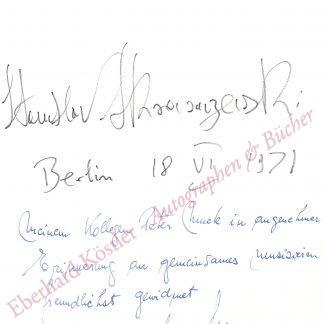 Stanislav Skrowaczewski
Berlin 18 VI 1971
Meinem Kollegen Peter in angenehmer
Erinnerung an gemeinsames Musizieren
freundlichst gewidmet
Eberhard Köstler Autographen & Bücher